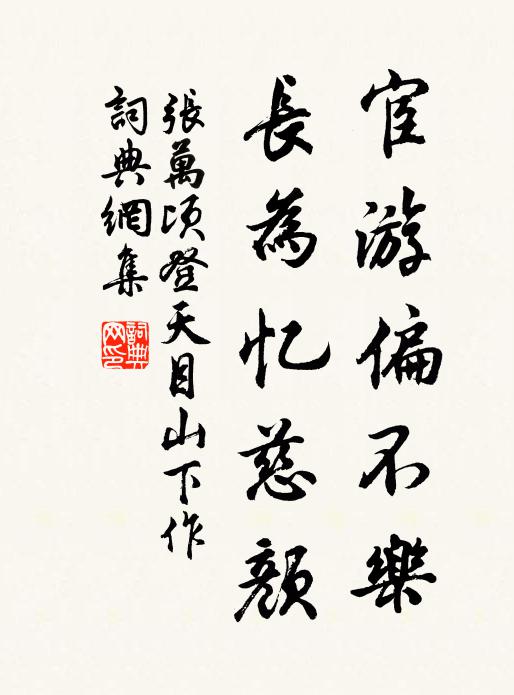 宦游偏不樂
長為忆慈顏
張萬頃登天目山下作
詞典網集
詞典网印